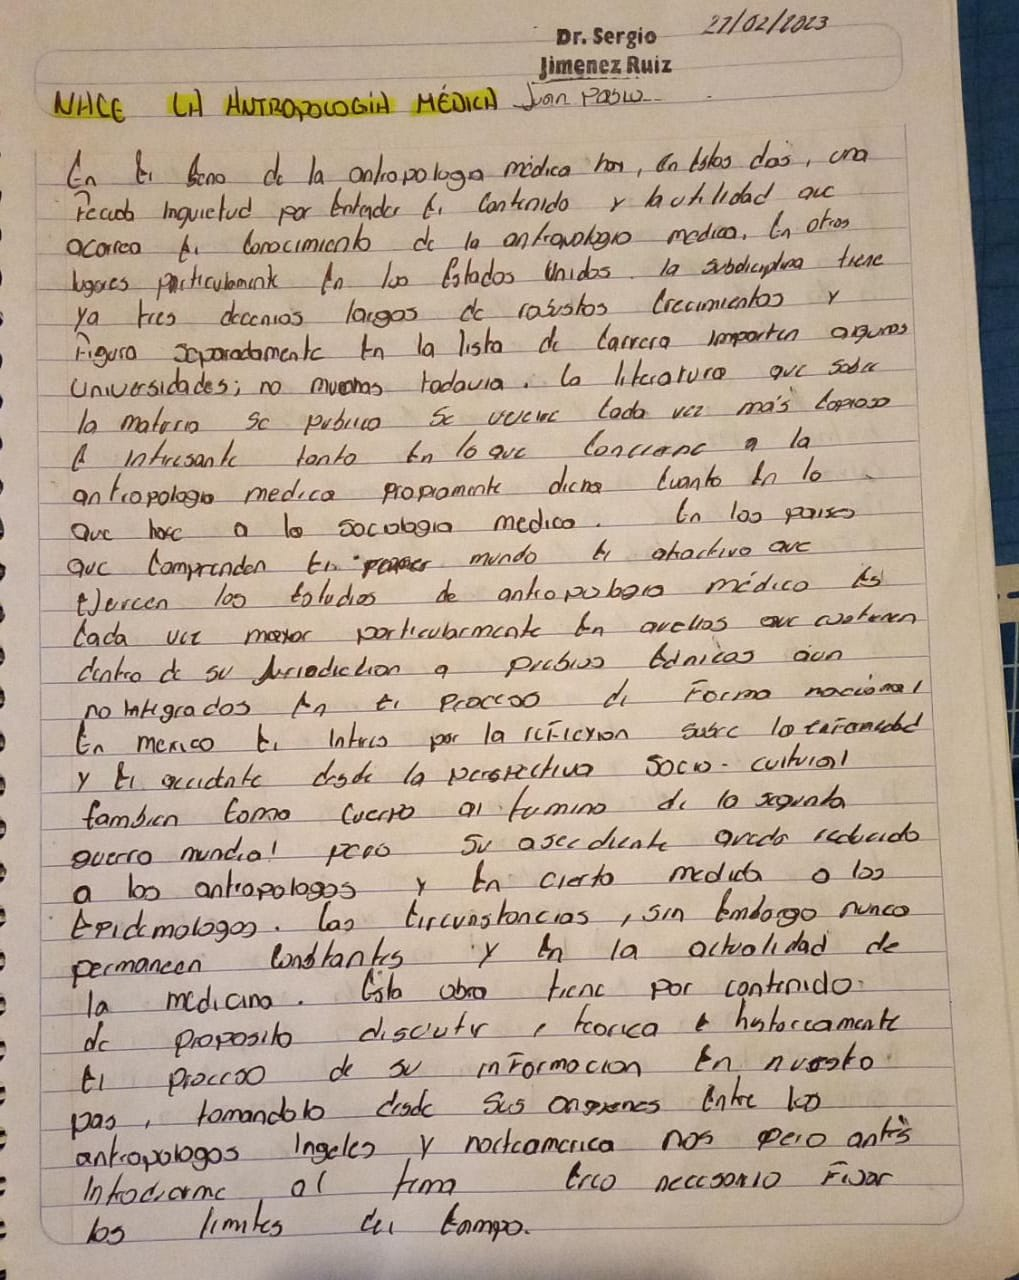 27/02/2023
Dr. Sergio
Jimenez Ruiz
NACE LA ANTROPOLOGIA MÉDICA Juan Pablo
En El Seno de la antropologia médica hoy, en Estos dias, una
Inquietud por Entender El Contenido y la utilidad que
acarrea El Conocimiento de la antropologia medica. En otros
lugares particularmente En los Estados Unidos. la subdiciplina tiene
ya tres decenios largos de crecimientos y
Figura separadamente En la lista de Carrera importen algunas
Universidades; no muchas todavia. la literatura que sobre
la materia se publica se vuelve Cada vez más Copiosa
E Interesante tanto En lo que Concierne a la
antropologia medica propiamente dicha Cuanto En lo
que hace a la sociologia medica. En los paises
que Comprenden El mundo El atractivo que
Ejercen los Estudios de antropologia médica Es
Cada vez mayor particularmente En aquellos que contienen
dentro de su Jurisdiction a pueblos Etnicas aun
no Integrados En El Proceso de Forma nacional
En mexico El Interes por la reflexion sobre la
y El accidente desde la perspectiva socio-cultural
tambien Como Cuerpo al termino de la segunda
guerra mundial pero su quedo reducido
a los antropologos y En cierto medida a los
Epidemologos. Las Circunstancias, sin Embargo nunca
permaneen Constantes y En la actualidad de
la medicina. Esta obra tiene por contenido
de proposito discutir, teorica E
El proceso de su informacion En nuesto
pas, tomandolo desde sus Entre los
antropologos Ingeles y norteamerica nos pero antes
al tema Creo necesario Fijar
los limites del Campo.